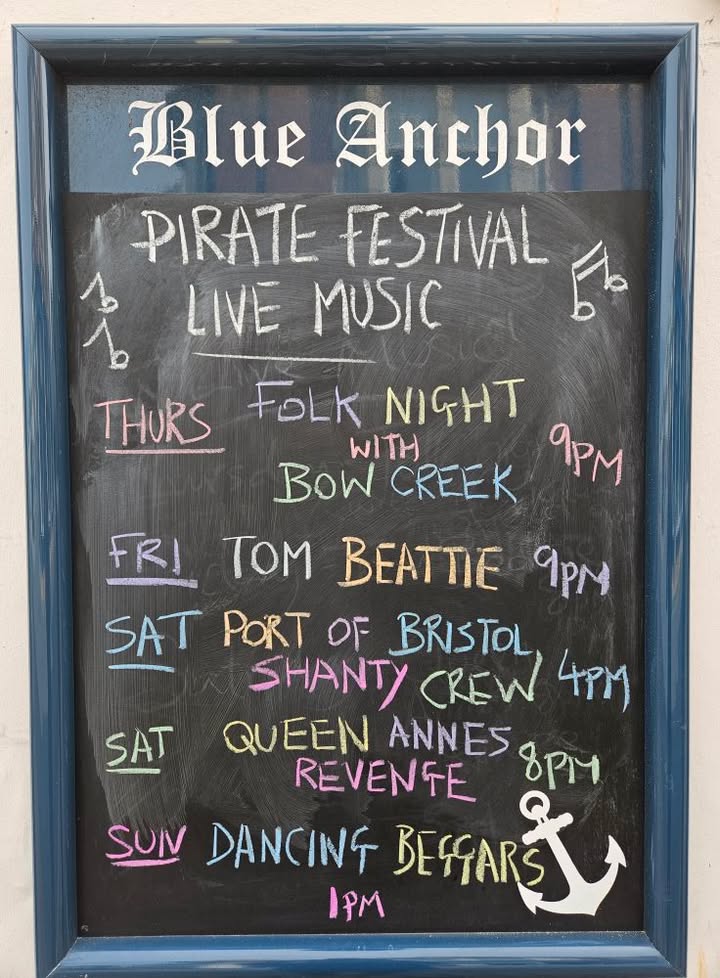 Blue Anchor
PIRATE FESTIVAL
LIVE MUSIC
THURS FOLK NIGHT
WITH 9PM
BOW CREEK
FRI TOM BEATTIE 9PM
SAT PORT OF BRISTOL
SHANTY CREW 4PM
SAT QUEEN ANNES
REVENGE 8PM
SUN DANCING BEGGARS
1PM